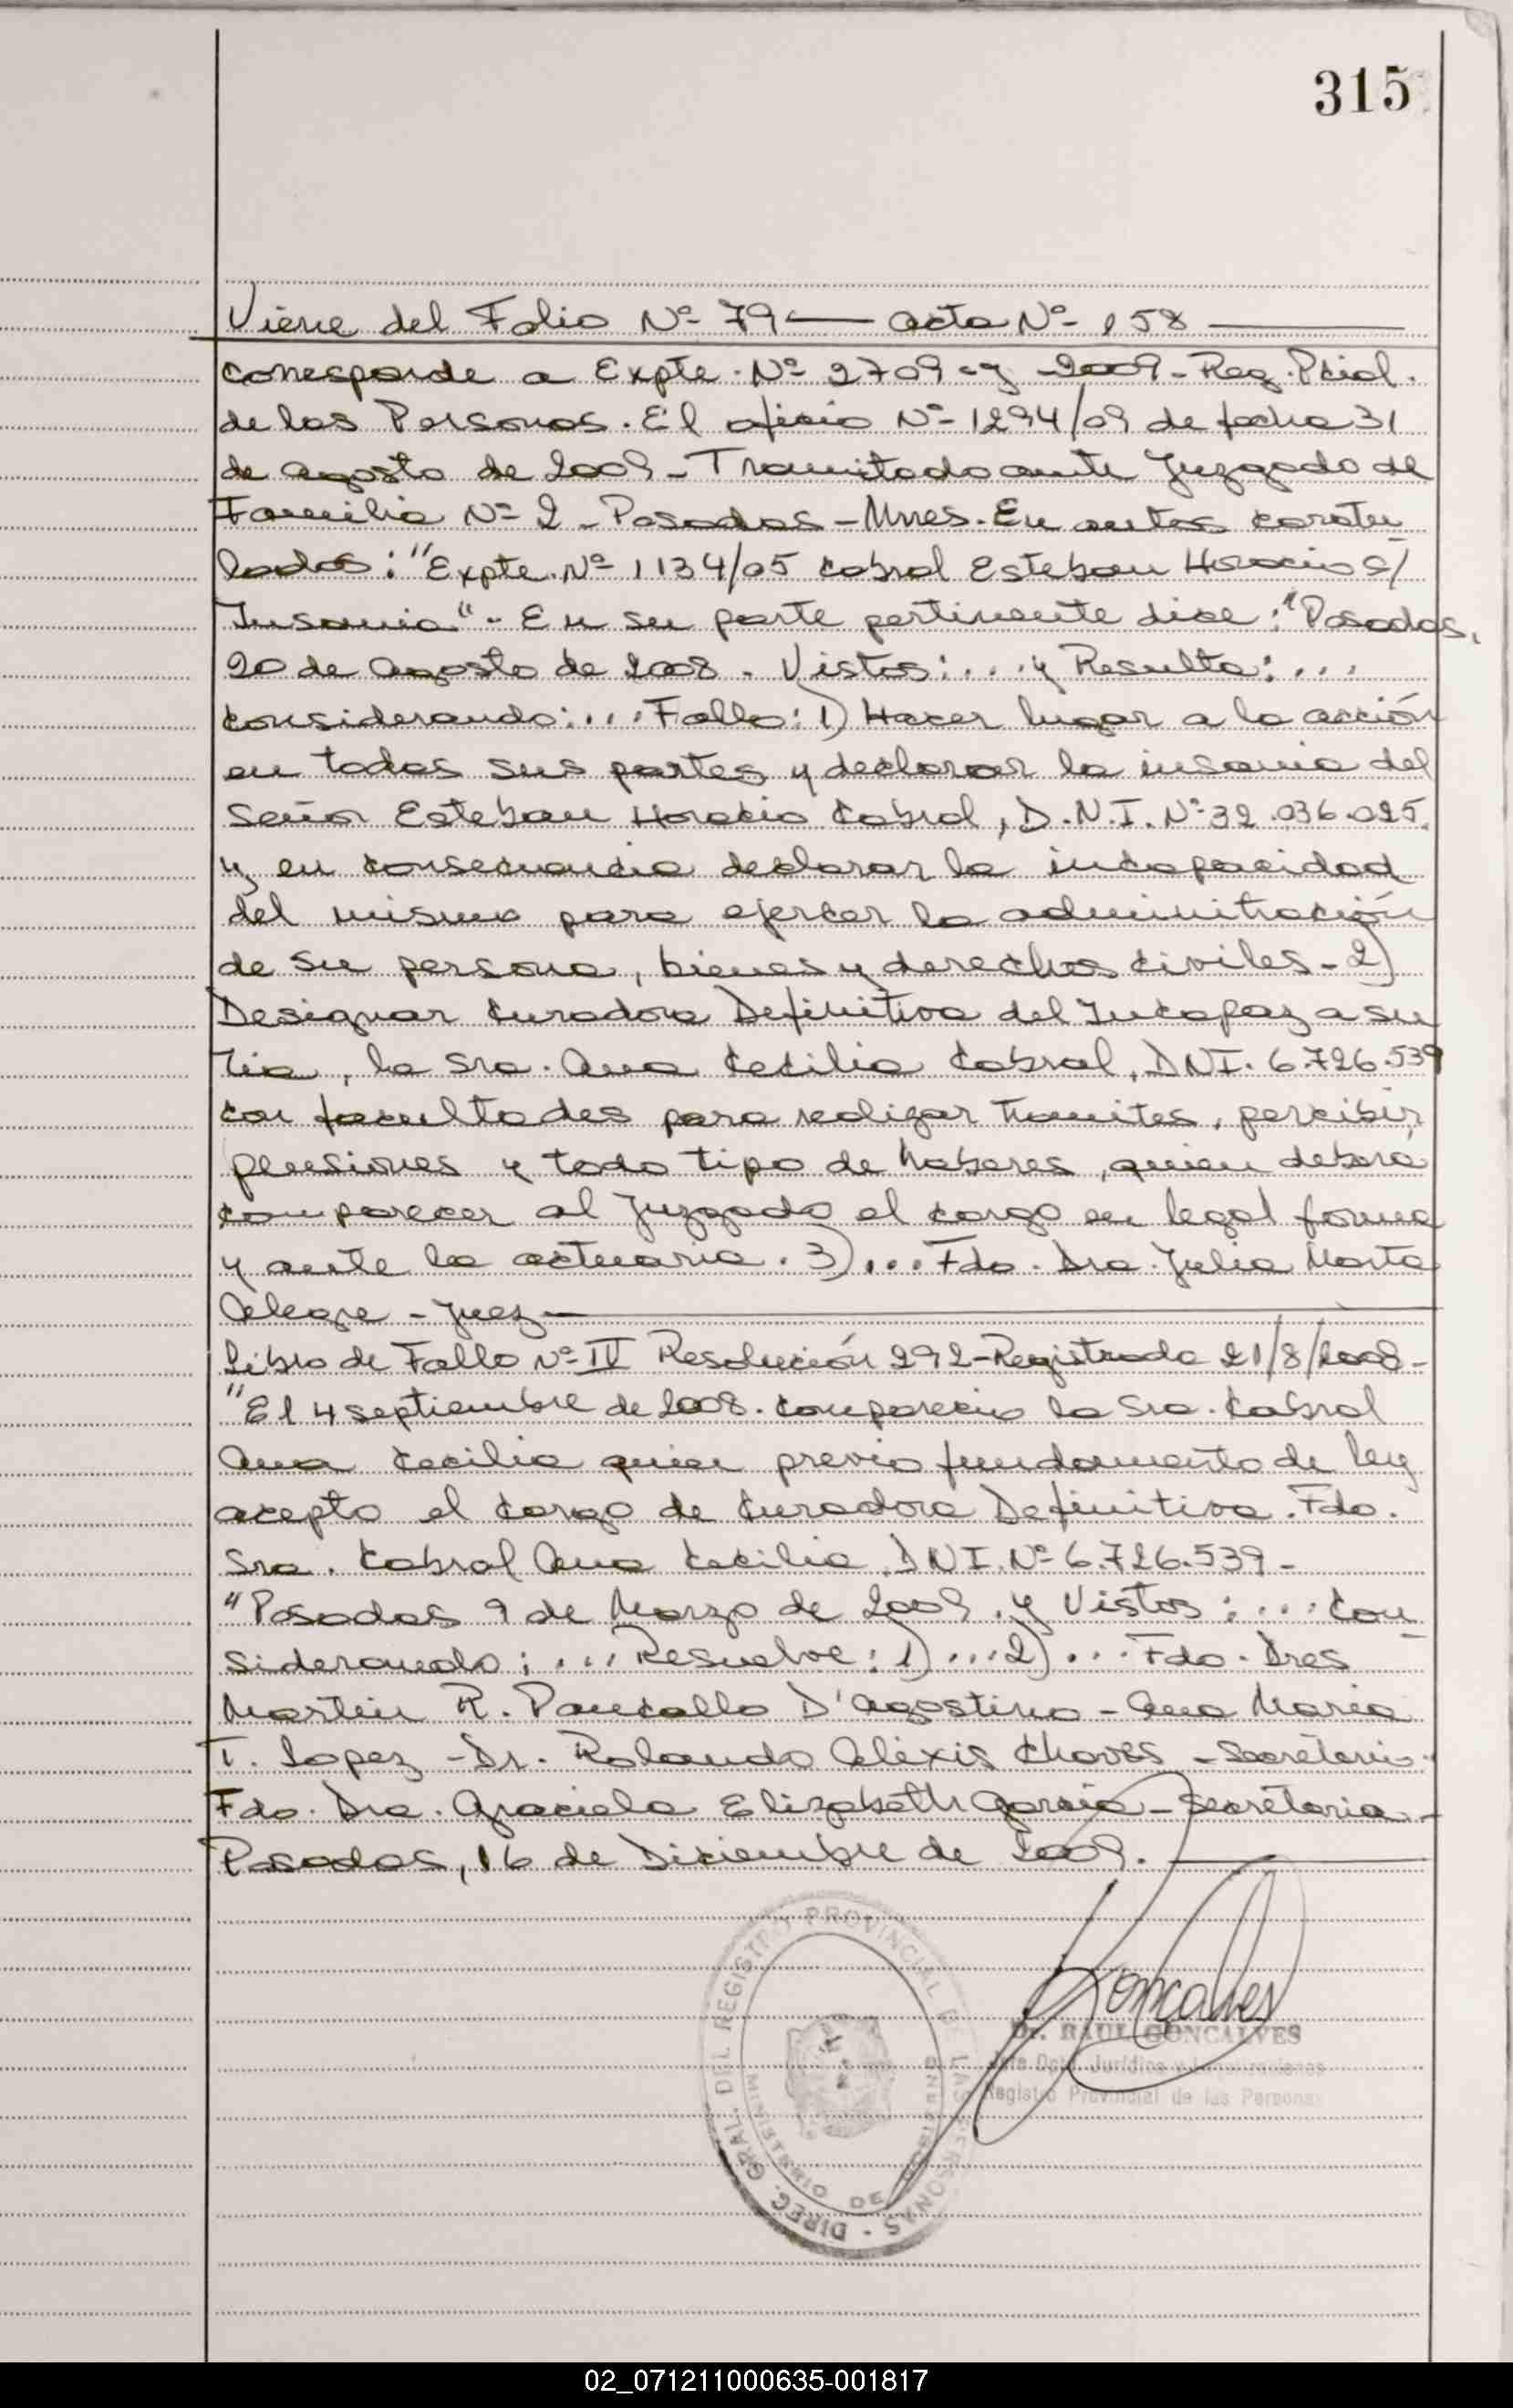 315
Viene del Folio Nº 79 — acta Nº 158 —
corresponde a Expte. Nº 2709-y-2009-Reg. Pcial.
de las Personas. El oficio Nº 1294/09 de fecha 31
de agosto de 2009 - Tramitado ante Juzgado de
Familia Nº 2 - Posadas - Mnes. En autos caratu
lados: "Expte. Nº 1134/05 Cabral Esteban Horacio s/
Insania" - En su parte pertinente dice: "Posadas,
20 de agosto de 2008. Vistos: ... y Resulta: ...
considerando: ... Fallo: 1) Hacer lugar a la acción
en todas sus partes y declarar la insania del
señor Esteban Horacio Cabral, D.N.I. Nº 32.036.025.
y en consecuencia declarar la incapacidad
del mismo para ejercer la adminitración
de su persona, bienes y derechos civiles - 2)
Designar Curadora Definitiva del Incapaz a su
tia, la Sra. Ana Cecilia Cabral, DNI. 6.726.539
con facultades para realizar tramites, percibir
pensiones y todo tipo de haberes, quien deberá
comparecer al Juzgado el cargo en legal forma
y ante la actuaria. 3) ... Fdo. Dra. Julia Marta
Alegre - Juez —
Libro de Fallo Nº IV Resolución 292 - Registrada 21/8/2008 -
"El 4 septiembre de 2008. compareció la Sra. Cabral
Ana Cecilia quien previo fundamento de ley
acepto el cargo de Curadora Definitiva. Fdo.
Sra. Cabral Ana Cecilia DNI. Nº 6.726.539 -
"Posadas 9 de Marzo de 2009. y Vistos: ... Con
siderando: ... Resuelve: 1) ... 2) ... Fdo. Dres
Martin R. Pancallo D'agostino - Ana Maria
T. Lopez - Dr. Rolando Alexis Chaves - Secretario.
Fdo. Dra. Graciela Elizabeth Garcia - Secretaria -
Posadas, 16 de Diciembre de 2009. —
DIREC. GRAL. DEL REGISTRO PROVINCIAL DE LAS PERSONAS -
MINISTERIO DE GOBIERNO
Goncalves
Dr. RAUL GONCALVES
Jefe Dpto. Jurídico y
Registro Provincial de las Personas
02_071211000635-001817